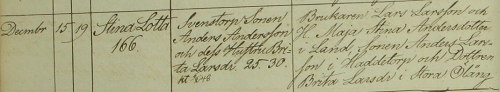 Decembr 15 19 Stina Lotta
166.
Svenstorp Sonen
Anders Andersson
och dess Hustru Bri-
ta Larsdr. 25. 30.
Brukaren Lars Larsson och
H. Maja Stina Andersdotter
i Lund, Sonen Anders Lars-
son i Haddetorp och Dottren
Brita Larsdr i Stora